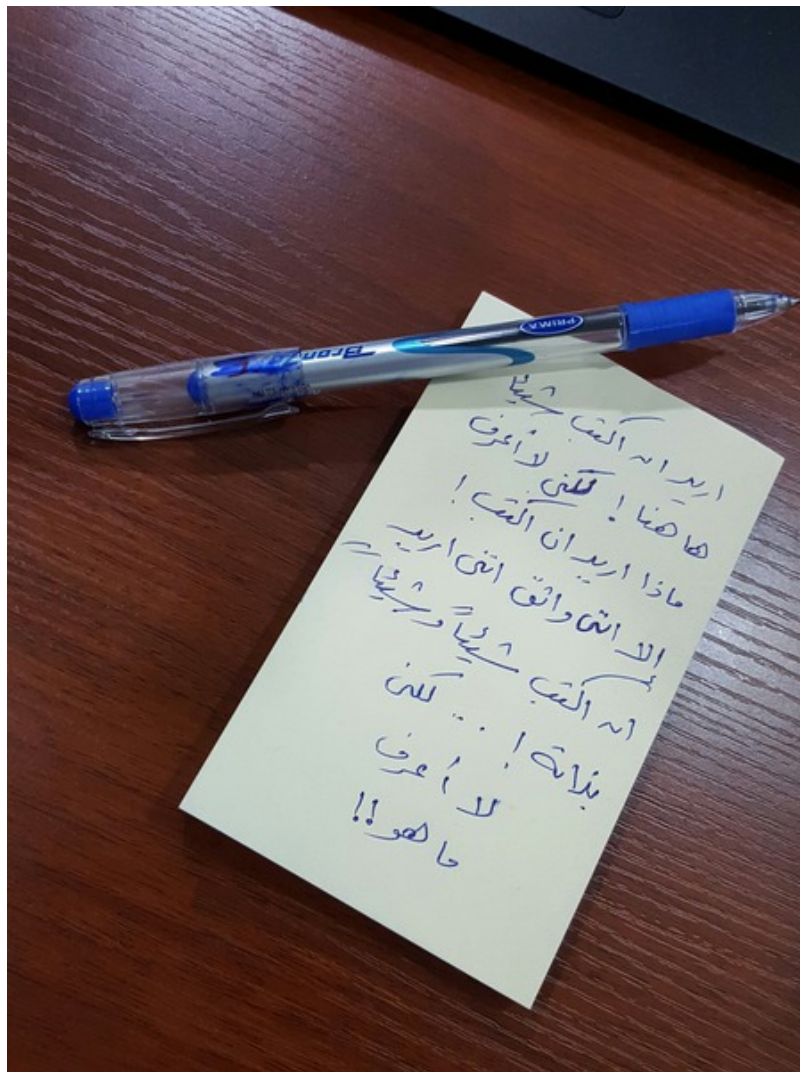 PRIMA
اريد ان اكتب شيئاً
هاهنا! لكنى لا أعرف
ماذا اريد ان اكتب!
إلا اننى واثق اننى اريد
أن اكتب شيئاً وشيئاً
بذاته! .. لكنى
لا أعرف
ما هو!!